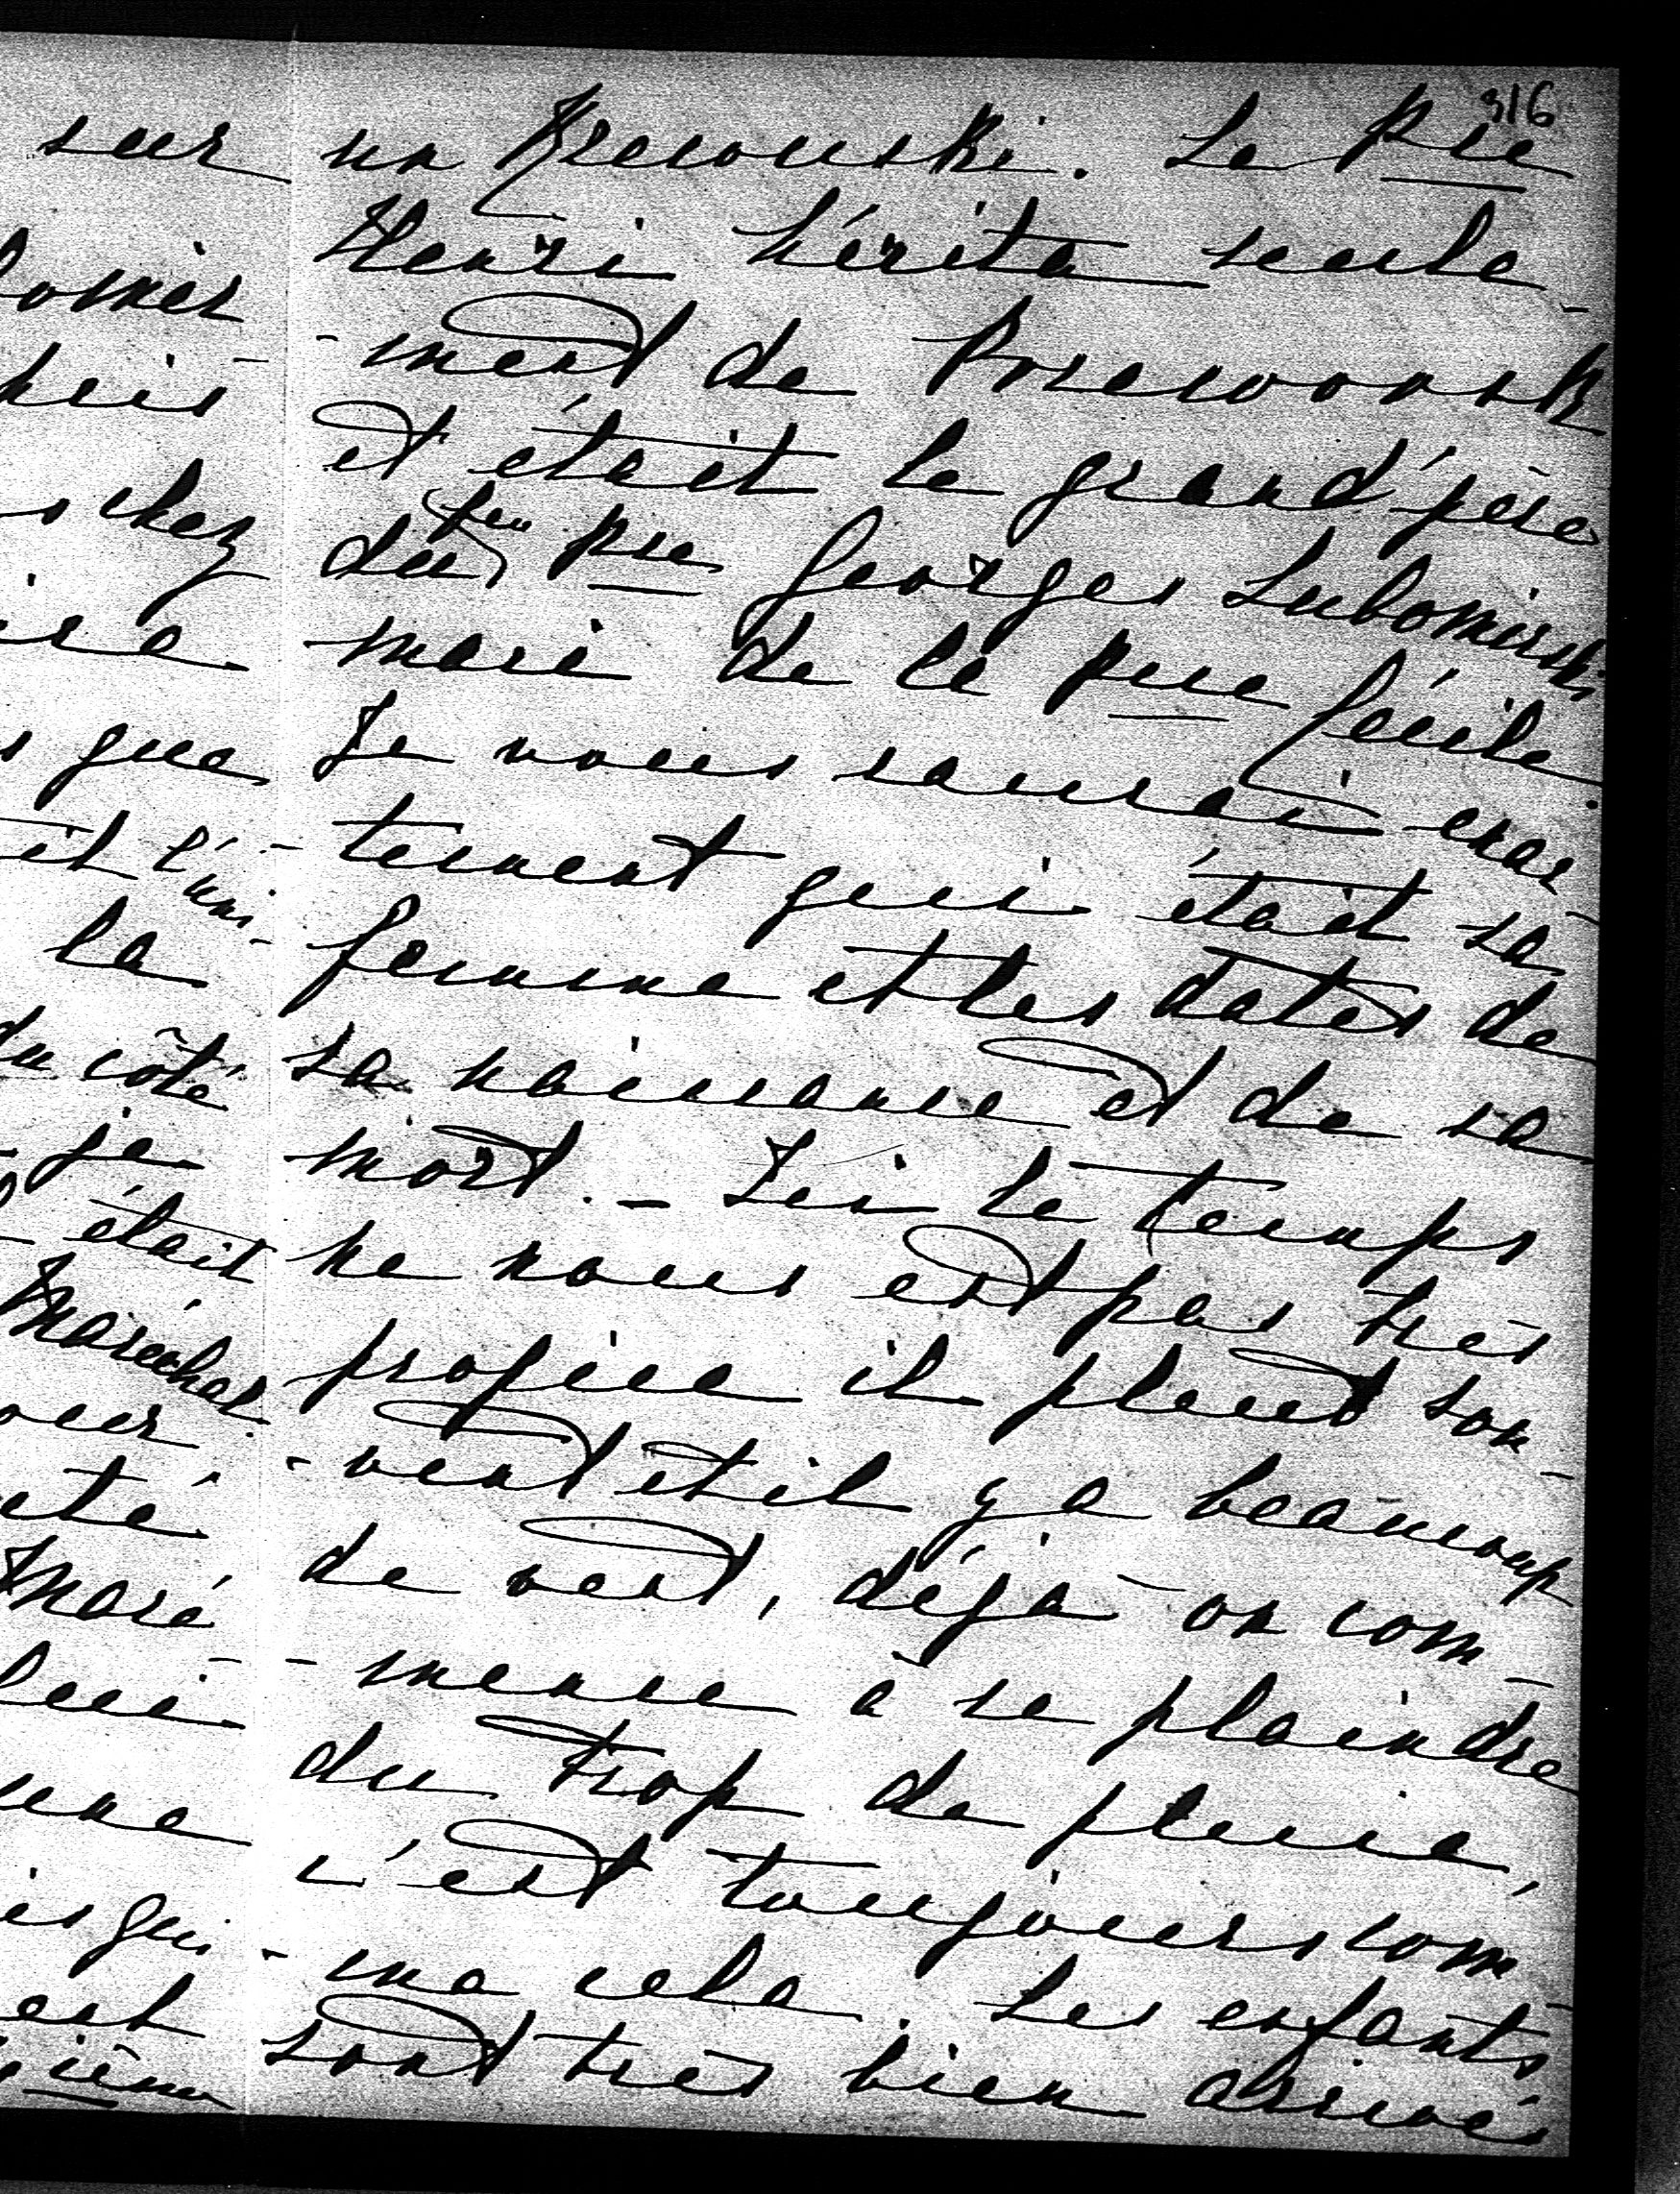 316
sur
lomir
puis
s chez
ire
s que
it l'uni-
la
du côté
je
était
Maréchal.
pour
eté
Maré-
lui
une
est
ième
un Rzewuski. Le Pce
Henri hérita seule-
-ment de Przeworsk
et était le grand'père
du feu pce Georges Lubomirski
mari de la pcce Cécile.
Je vous saurai exac-
-tement qui était sa
femme et les dates de
sa naissance et de sa
mort. - Ici le temps
ne nous est pas très
propice il pleut sou-
-vent et il y a beaucoup
de vent, déjà on com-
-mence à se plaindre
du trop de pluie,
c'est toujours com-
-me cela. Les enfants
sont très bien arrivés